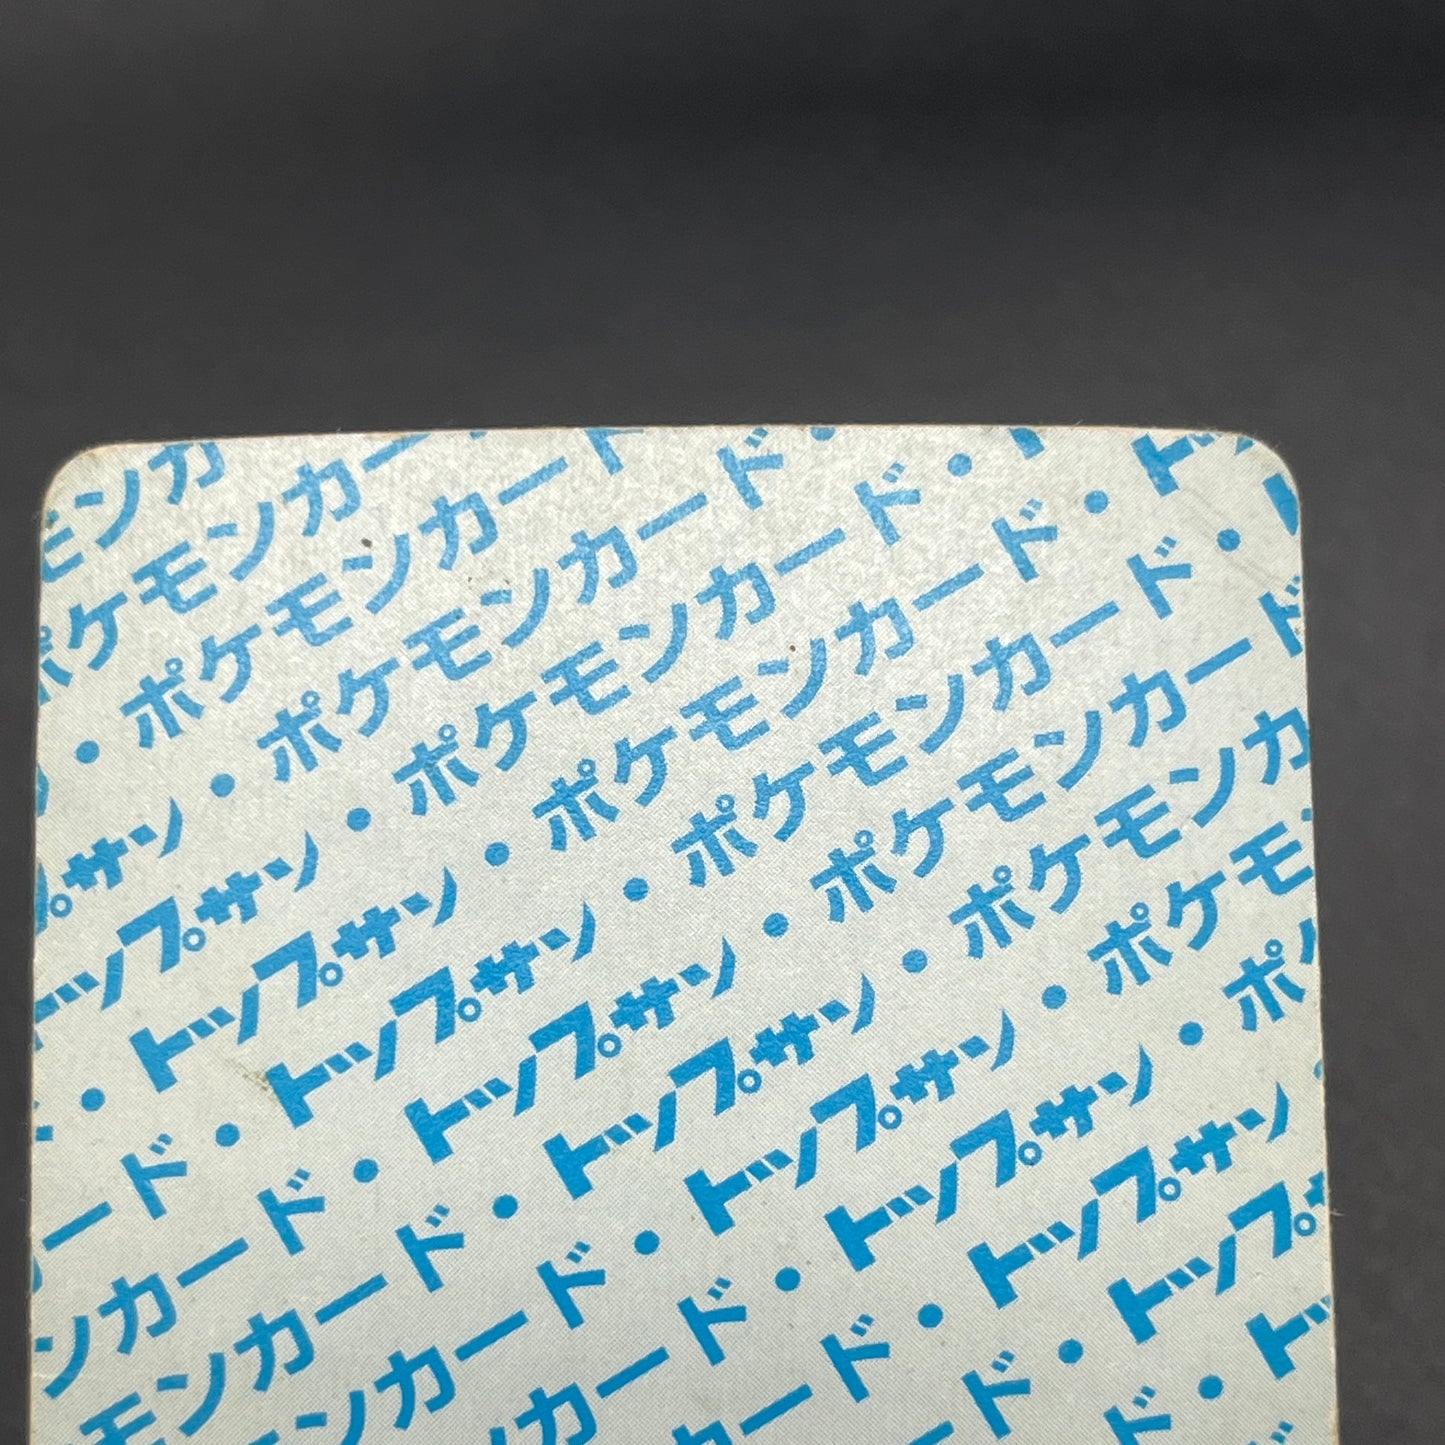 モンカ
ポケモンカー
・ポケモンカード
プサン・ポケモンカード・
ップサン・ポケモンカード・
・トップサン・ポケモンカード・ト
ード・トップサン・ポケモンカード・
ンカード・トップサン・ポケモンカード
モンカード・トップサン・ポケモンカ
ンカード・トップサン・ポケモ
カード・トップサン・ポ
ード・トップサン
ード・トップ
ド・ト